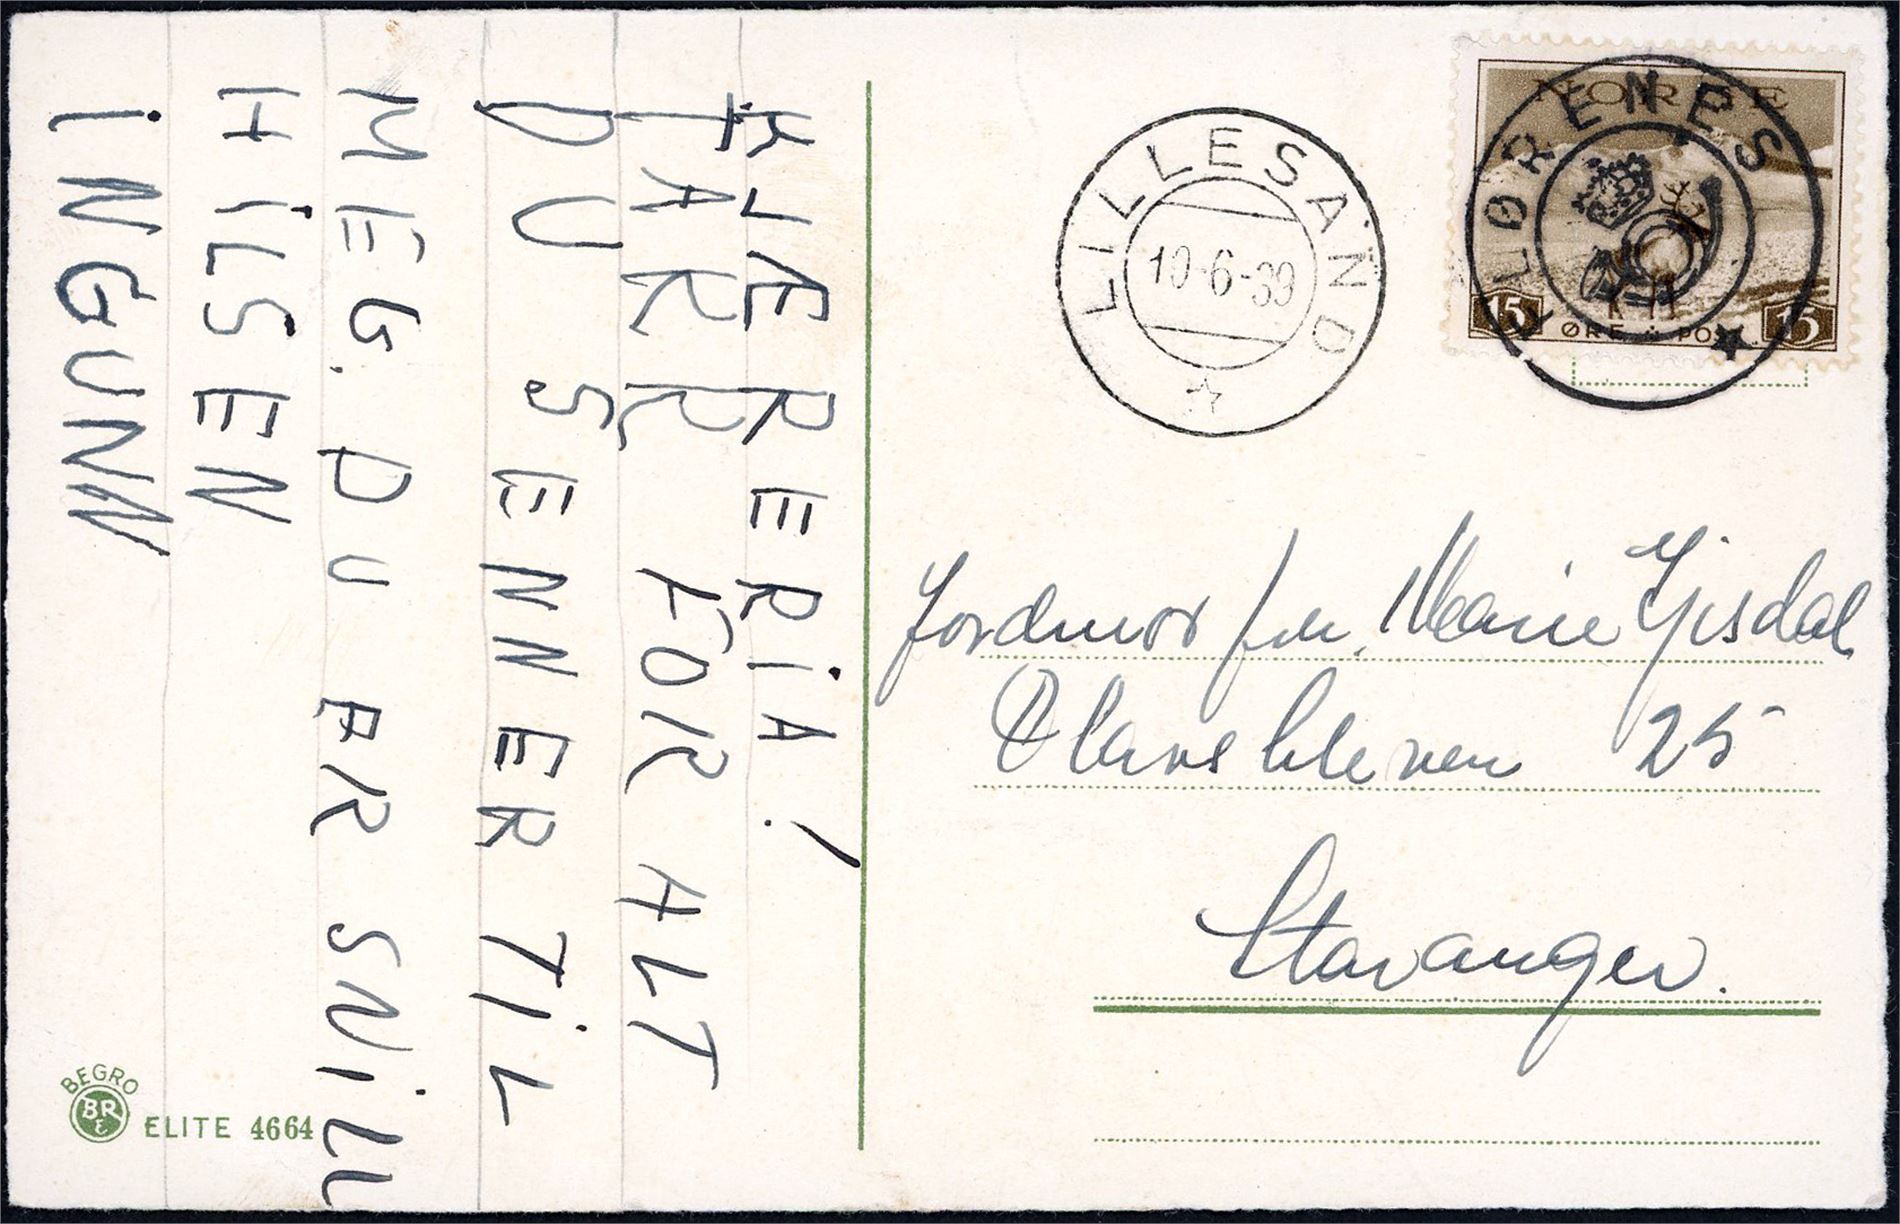 KJÆRE RiA!
TAKK FOR ALT
DU SENNER TiL
MEG. DU ER SNiLL
HiLSEN
iNGUNN
BEGRO
BR
ELITE 4664
LILLESAND
10-6-39
NORGE
15 ØRE POST 15
FLØRENES
Jordmor frk. Marie Gjisdal
Olavskleven 25
Stavanger.